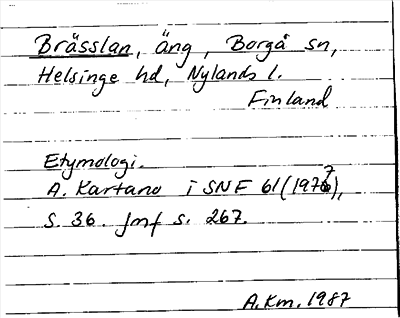 Brässlan, äng, Borgå sn,
Helsinge hd, Nylands l.
Finland
Etymologi.
A. Kartano i SNF 61 (1977),
s. 36. Jmf s. 267.
A.Km. 1987